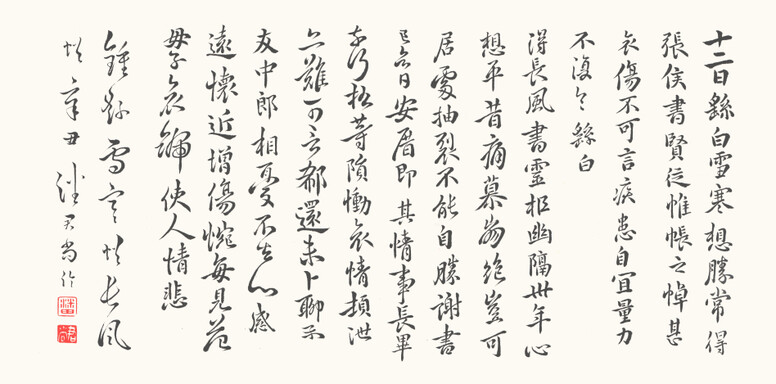 十二日繇白雪寒想勝常得
張侯書賢從帷帳之悼甚
哀傷不可言疾患自宜量力
不復 繇白
得長風書靈柩幽隔卅年心
想平昔痛慕崩絕豈可
居處抽裂不能自勝謝書
已 日安厝即其情事長畢
奈何松等隕慟哀情頓泄
亦難可言郗還未卜聊示
友中郎相憂不去心感
遠懷近增傷惋每見范
母子哀號使人情悲
鍾繇雪寒帖長風
帖 辛丑